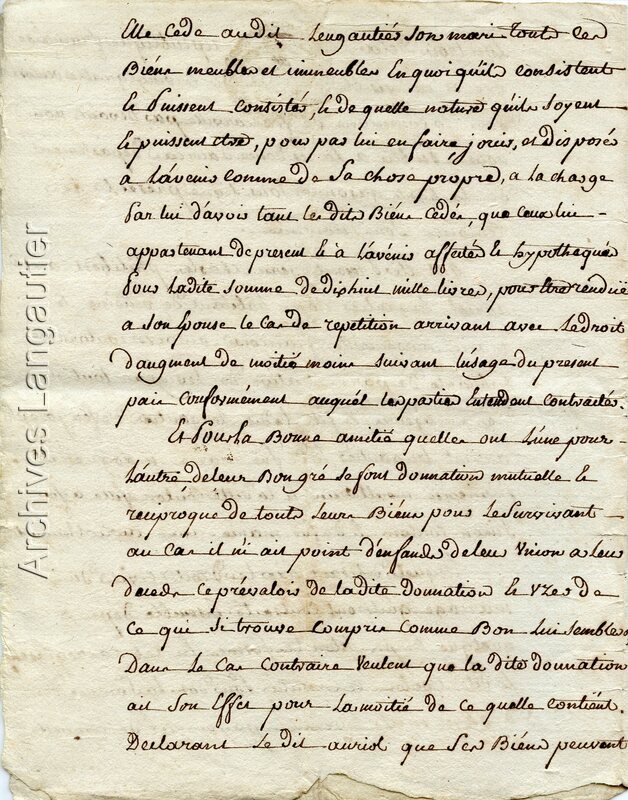 Elle Cede audit Lengautiés son mari touts ces
Biéns meubles et immeubles En quoi quils consistent
le Puissent Consistés, & de quelle nature quils soyent
& puissent etre, pour pas lui en faire jouir, et disposés
a L'avenir comme de Sa chose propre, a la charge
Par lui d'avoir tant les dits Biéns Cedés, que Ceux lui
appartenant de present & à L'avenir affectés & hypothequés
Pour Ladite Somme de dix huit mille livres, pour être rendüe
a son Epouse le Cas de repetition arrivant avec Le droit
daugment de moitié moins suivant L'usage du present
païs Conformément auquél les parties Entendent contractés.
Et Pour la Bonne amitié quelles ont L'une pour
L'autre de leur Bon gré se font donnation mutuelle &
reciproque de touts leurs Biéns pour le Survivant
au Cas il n'i ait point d'enfands de leur Union a leur
decede ce prévaloir de ladite donnation & Uzer de
Ce qui si trouve Compris Comme Bon lui semblera,
Dans le Cas Contraire Veulent que la dite donnation
ait Son Effet pour La moitié de ce quelle contiént.
Declarant Le dit auriol que Ses Biéns peuvent
Archives Langautier